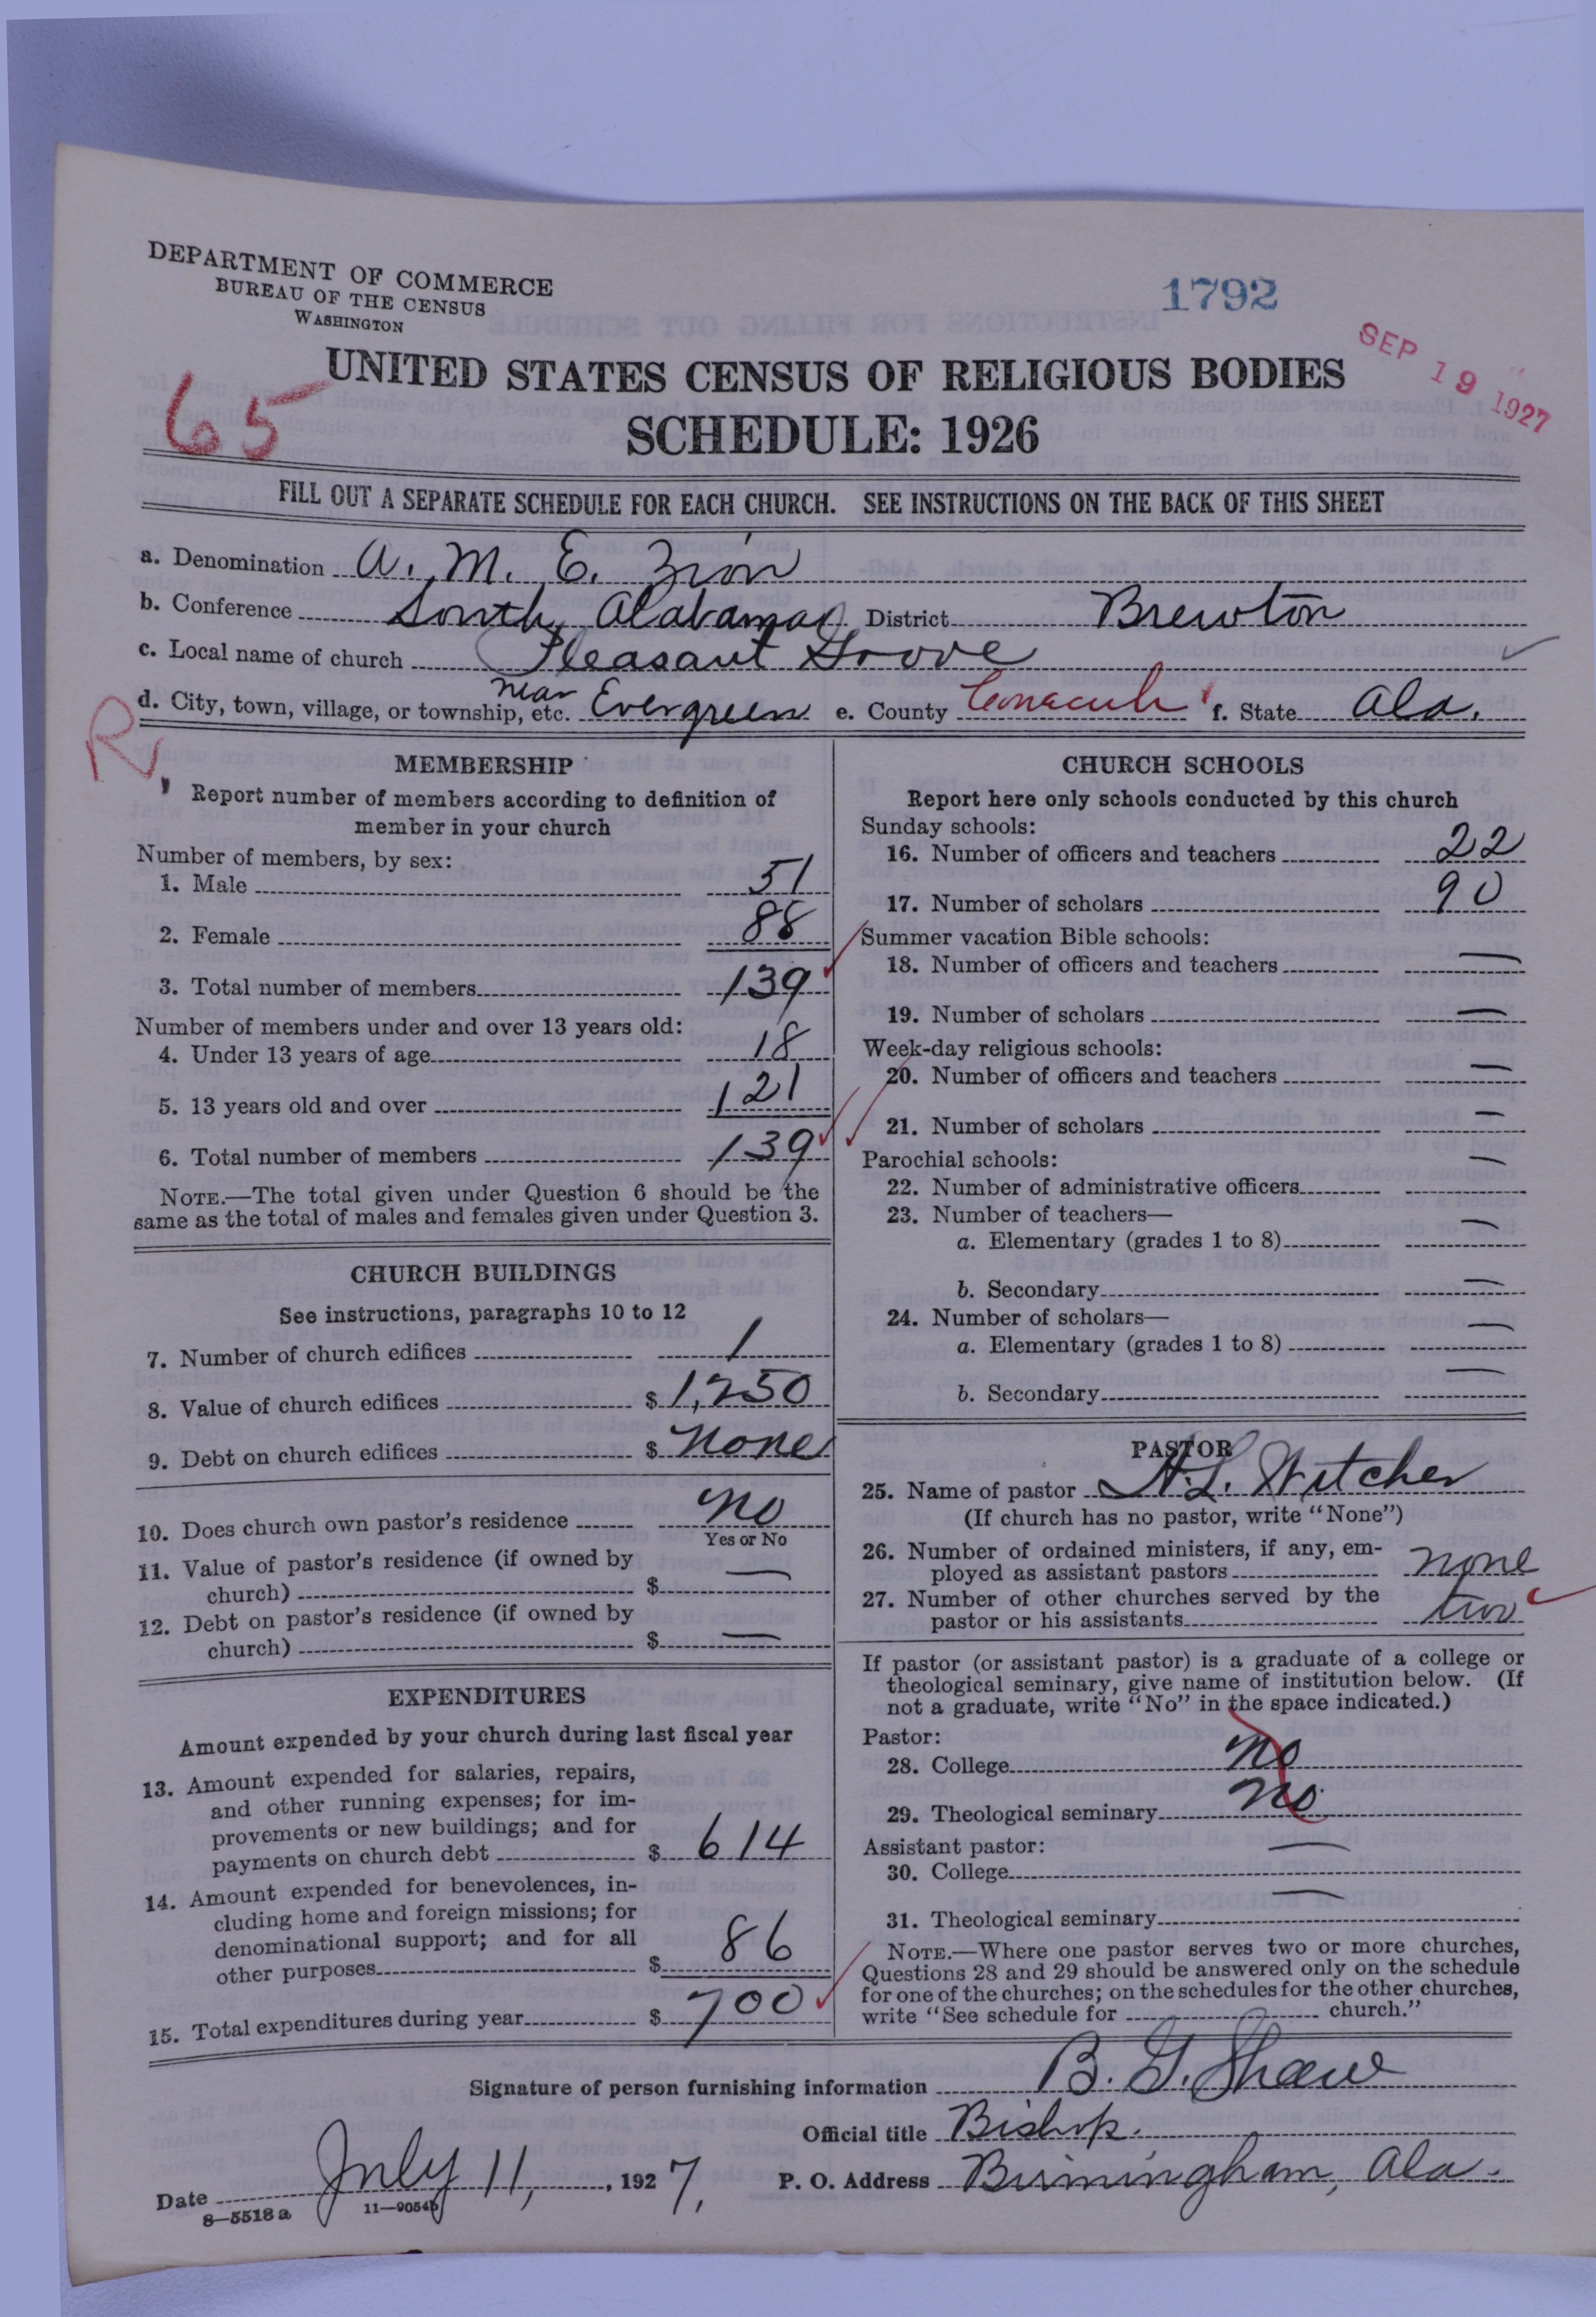 DEPARTMENT OF COMMERCE
BUREAU OF THE CENSUS
WASHINGTON
1792
SEP 19 1927
65
UNITED STATES CENSUS OF RELIGIOUS BODIES
SCHEDULE: 1926
FILL OUT A SEPARATE SCHEDULE FOR EACH CHURCH. SEE INSTRUCTIONS ON THE BACK OF THIS SHEET
a. Denomination A. M. E. Zion
b. Conference South Alabama District Brewton
c. Local name of church Pleasant Grove
d. City, town, village, or township, etc. near Evergreen e. County Conecuh f. State Ala.
R
MEMBERSHIP
Report number of members according to definition of
member in your church
Number of members, by sex:
1. Male 51
2. Female 88
3. Total number of members 139
Number of members under and over 13 years old:
4. Under 13 years of age 18
5. 13 years old and over 121
6. Total number of members 139
NOTE.—The total given under Question 6 should be the
same as the total of males and females given under Question 3.
CHURCH BUILDINGS
See instructions, paragraphs 10 to 12
7. Number of church edifices 1
8. Value of church edifices $ 1,250
9. Debt on church edifices $ none
10. Does church own pastor's residence no
Yes or No
11. Value of pastor's residence (if owned by
church) $ —
12. Debt on pastor's residence (if owned by
church) $ —
EXPENDITURES
Amount expended by your church during last fiscal year
13. Amount expended for salaries, repairs,
and other running expenses; for im-
provements or new buildings; and for
payments on church debt $ 614
14. Amount expended for benevolences, in-
cluding home and foreign missions; for
denominational support; and for all
other purposes $ 86
15. Total expenditures during year $ 700
CHURCH SCHOOLS
Report here only schools conducted by this church
Sunday schools:
16. Number of officers and teachers 22
17. Number of scholars 90
Summer vacation Bible schools:
18. Number of officers and teachers —
19. Number of scholars —
Week-day religious schools:
20. Number of officers and teachers —
21. Number of scholars —
Parochial schools:
22. Number of administrative officers —
23. Number of teachers—
a. Elementary (grades 1 to 8) —
b. Secondary —
24. Number of scholars—
a. Elementary (grades 1 to 8) —
b. Secondary —
PASTOR
25. Name of pastor H. L. Witcher
(If church has no pastor, write "None")
26. Number of ordained ministers, if any, em-
ployed as assistant pastors none
27. Number of other churches served by the
pastor or his assistants two
If pastor (or assistant pastor) is a graduate of a college or
theological seminary, give name of institution below. (If
not a graduate, write "No" in the space indicated.)
Pastor:
28. College no
29. Theological seminary no.
Assistant pastor:
30. College —
31. Theological seminary —
NOTE.—Where one pastor serves two or more churches,
Questions 28 and 29 should be answered only on the schedule
for one of the churches; on the schedules for the other churches,
write "See schedule for church."
Signature of person furnishing information B. G. Shaw
Official title Bishop.
Date July 11, 1927. P. O. Address Birmingham, Ala.
8—5518a 11—9054b